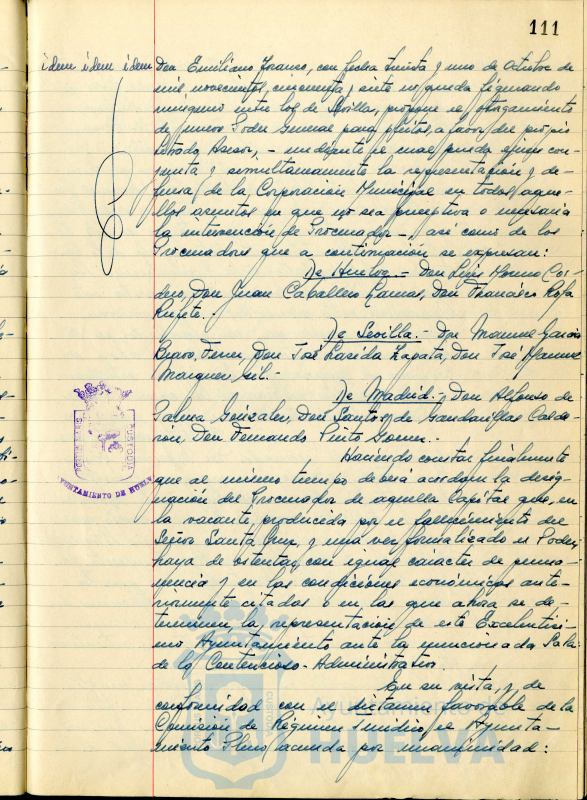 111
idem idem idem
Don Emiliano Franco, con fecha treinta y uno de Octubre de
mil novecientos cincuenta y siete no queda figurando
ninguno entre los de Sevilla, propone el otorgamiento
de nuevo Poder General para pleitos, a favor del propio
Letrado Asesor, - mediante el cual pueda ejercer con-
junta y simultaneamente la representación y de-
fensa de la Corporación Municipal en todos aque-
llos asuntos en que no sea preceptiva o necesaria
la intervención de Procurador -, así como de los
Procuradores que a continuación se expresan:
De Huelva.- Don Luis Moreno Cor-
dero, Don Juan Caballero Lamas, Don Francisco Rofa
Rufete.
De Sevilla.- Don Manuel García
Bravo Ferrer, Don José Laseida Zapata, Don José Manuel
Marquez Gil.-
De Madrid.- Don Alfonso de
Palma Gonzalez, Don Santos de Gandarillas Calde-
rón, Don Fernando Pinto Gomez.
Haciendo constar finalmente
que al mismo tiempo deberá acordarse la desig-
nación del Procurador de aquella Capital que, en
la vacante, producida por el fallecimiento del
Señor Santa Cruz, y una vez formalizado el Poder,
haya de ostentar, con igual carácter de perma-
nencia y en las condiciones económicas ante-
riormente citadas o en las que ahora se de-
terminen la representación de este Excelentísi-
mo Ayuntamiento ante la mencionada Sala
de lo Contencioso-Administrativo.
En su vista, y de
conformidad con el dictamen favorable de la
Comisión de Régimen Jurídico, el Ayunta-
miento Pleno, acuerda por unanimidad:
PORTUS MARIS
CUSTODIA
AYUNTAMIENTO DE HUELVA
Ayuntamiento de
HUELVA